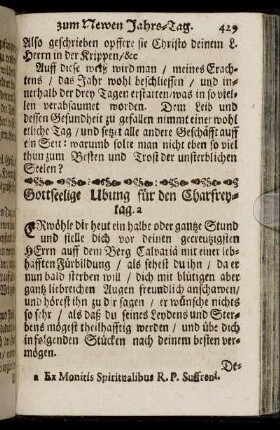 zum Newen Jahrs-Tag. 429
Also geschrieben opffere sie Christo deinem L.
Herrn in der Krippen/&c
Auff diese weiß wird man / meines Erach-
tens / das Jahr wohl beschliessen / und in-
nerhalb der drey Tagen erstatten/was in so viel-
len verabsaumet worden. Dem Leib und
dessen Gesundheit zu gefallen nimmt einer wohl
etliche Tag / und setzet alle andere Geschäfft auff
ein Seit: warumb solte man nicht eben so viel
thun zum Besten und Trost der unsterblichen
Seelen?
Gottseelige Ubung für den Charfrey-
tag. a
ERwöhle dir heut ein halbe oder gantze Stund
und stelle dich vor deinen gecreutzigsten
HErrn auff dem Berg Calvariä mit einer leb-
hafften Fürbildung / als sehest du ihn / da er
nun bald sterben will / dich mit blutigen aber
gantz liebreichen Augen freundlich anschawen/
und hörest ihn zu dir sagen / er wünsche nichts
so sehr / als daß du seines Leydens und Ster-
bens mögest theilhafftig werden / und übe dich
in folgenden Stücken nach deinem besten ver-
mögen.
De-
a Ex Monitis Spiritualibus R. P. Suffreni.